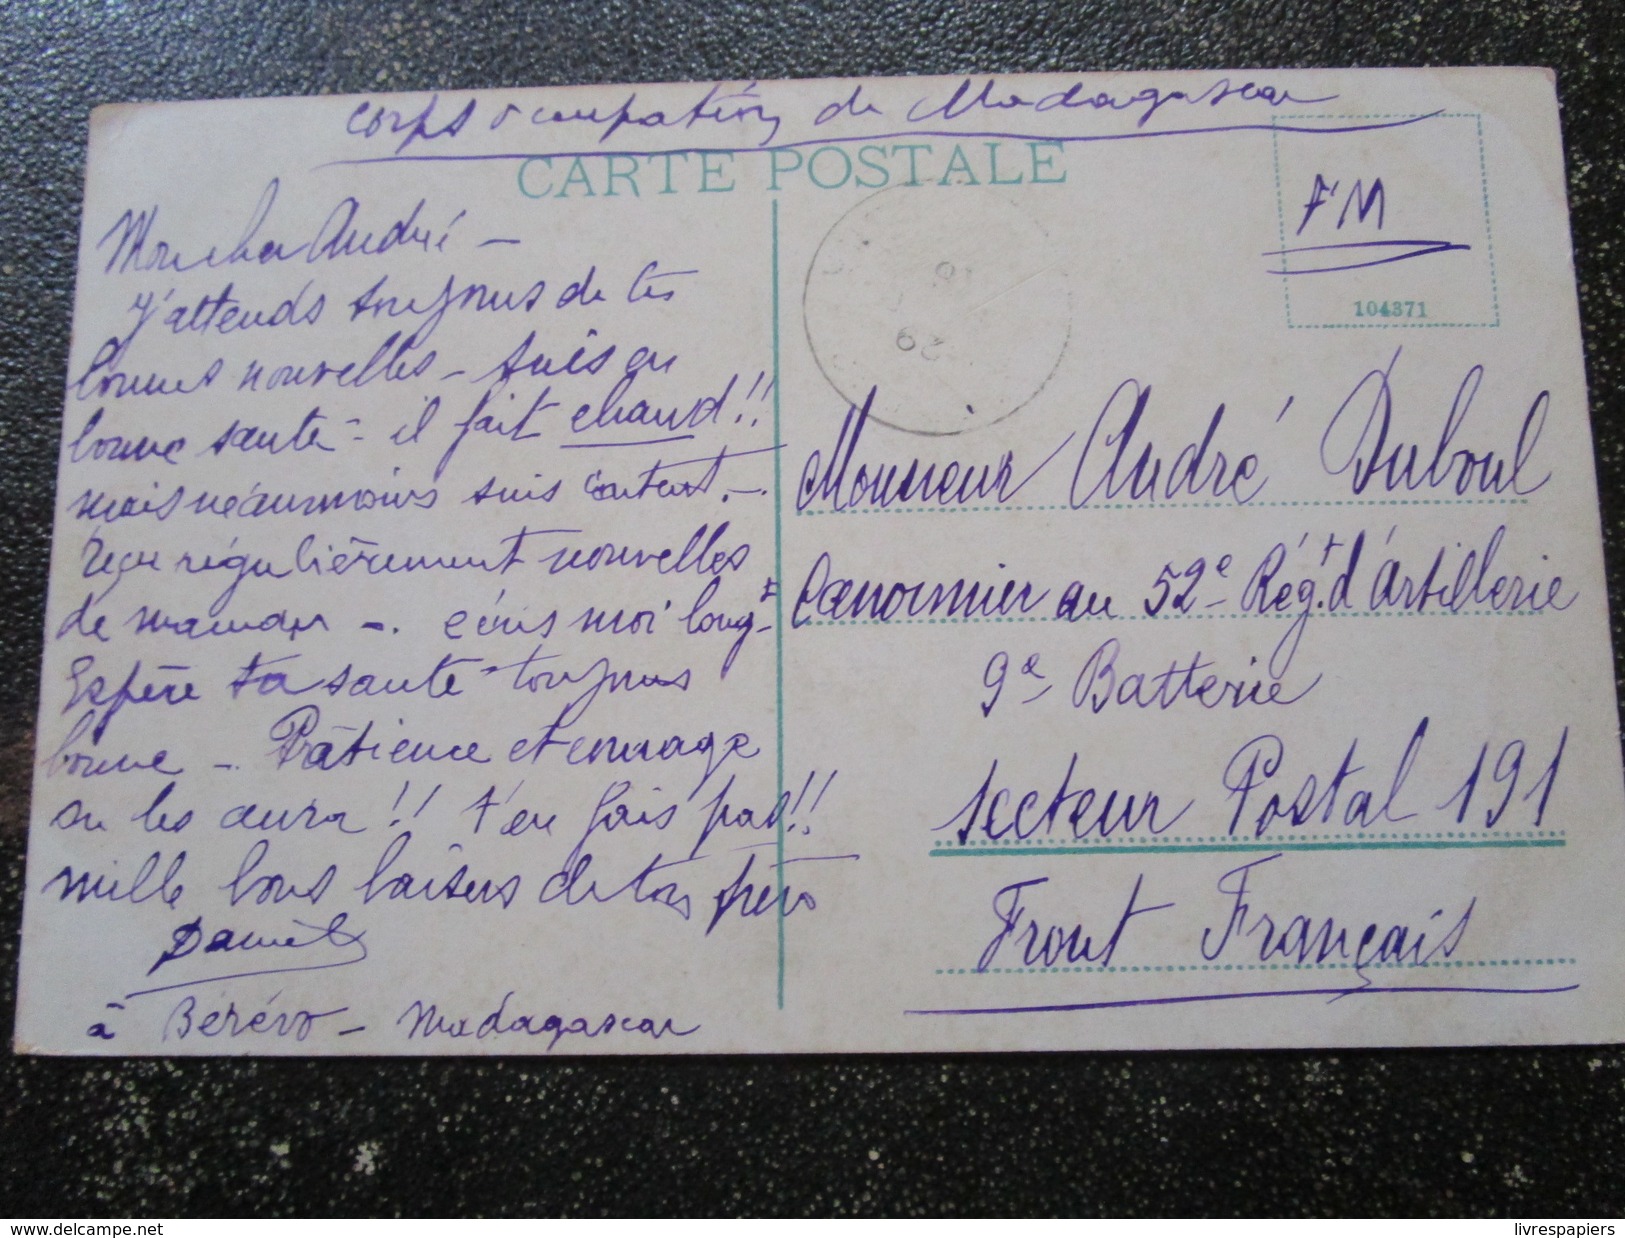 corps occupation de Madagascar
CARTE POSTALE
FM
104371
Mon cher André -
J'attends toujours de tes
bonnes nouvelles - suis en
bonne santé - il fait chaud!!
mais néanmoins suis content. -
reçu régulièrement nouvelles
de maman -. écris moi longt
Espère ta santé toujours
bonne - Pâtience et courage
on les aura!! t'en fais pas!!
mille bons baisers de ton frère
Daniel
à Bérévo - Madagascar
Monsieur André Duboul
Canonnier au 52e Rég.t d'Artillerie
9e Batterie
Secteur Postal 191
Front Français
www.delcampe.net
livrespapiers